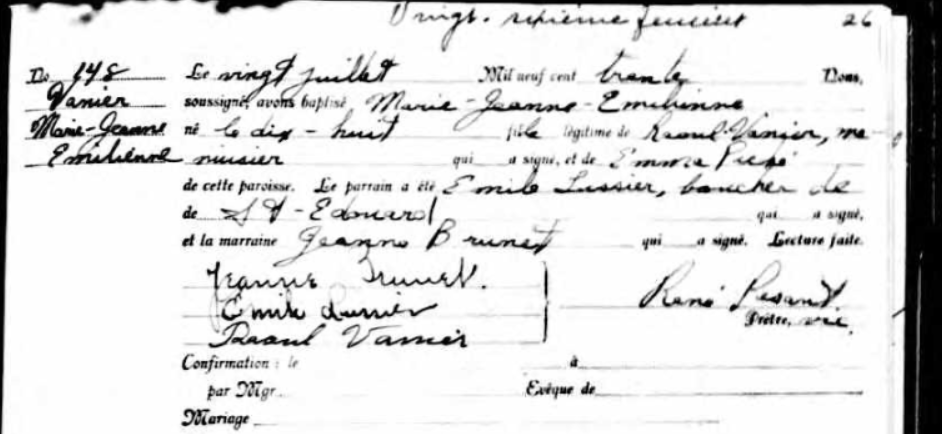 Vingt-sixième feuillet 26
No 148 Le vingt juillet Mil neuf cent trente Nous,
Vanier soussigné, avons baptisé Marie-Jeanne-Emilienne
Marie-Jeanne né le dix-huit fille légitime de Raoul Vanier, me-
Emilienne nuisier qui a signé, et de Emma
de cette paroisse. Le parrain a été Emile Lussier, boucher de
de St-Edouard qui a signé,
et la marraine Jeanne Brunet qui a signé. Lecture faite.
Jeanne Brunet.
Emile Lussier René Pesant.
Raoul Vanier Prêtre, vic.
Confirmation : le à
par Mgr. Evêque de
Mariage